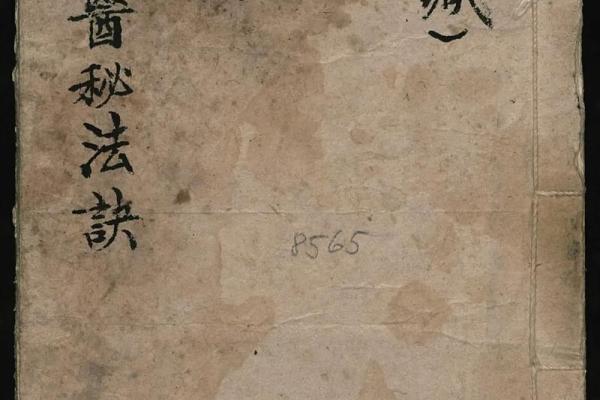 醫秘法訣
8565